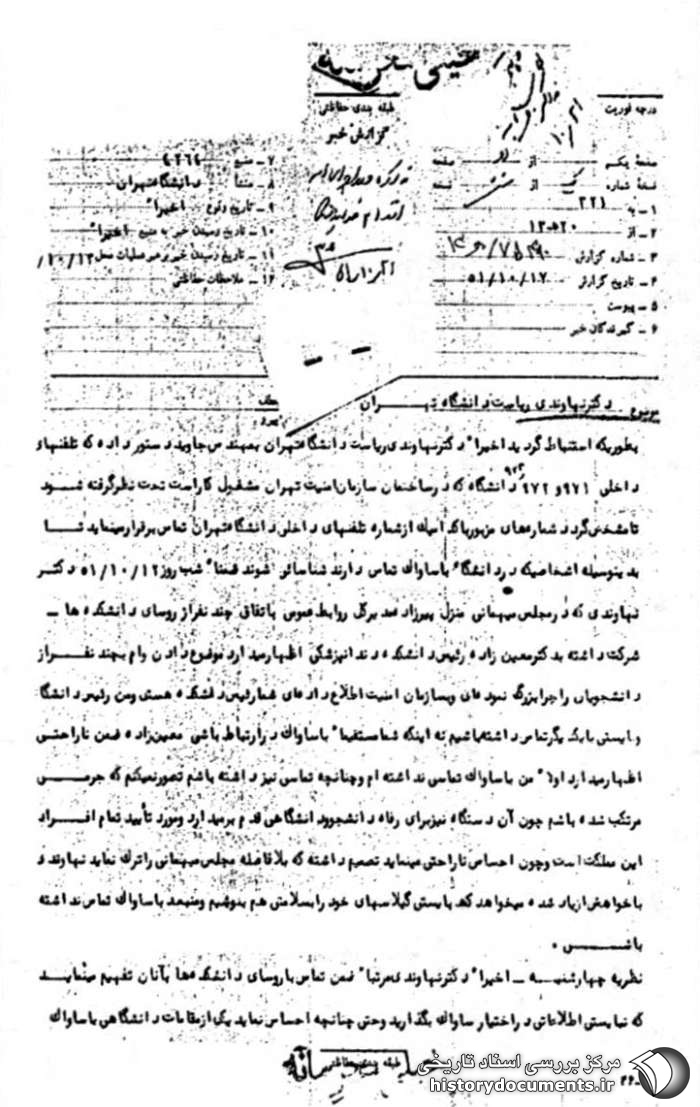 درجه فوریت
طبقه بندی حفاظتی
گزارش خبر
صفحه یکم از صفحه
نسخه شماره از نسخه
۱ - به ۳۲۱
۲ - از ۲۰ه۱۲
۳ - شماره گزارش
۴ - تاریخ گزارش ۵۱/۱۰/۱۷
۵ - پیوست
۶ - گیرندگان خبر
۷ - منبع
۸ - منشا دانشگاه تهران
۹ - تاریخ وقوع اخیرا"
۱۰ - تاریخ رسیدن خبر به منبع اخیرا"
۱۱ - تاریخ رسیدن خبر به رهبر عملیات محل
۱۲ - ملاحظات حفاظتی
موضوع دکتر نهاوندی ریاست دانشگاه تهران
بطوریکه استنباط گردید اخیرا" دکتر نهاوندی ریاست دانشگاه تهران بمهندس جاوید دستور داده که تلفنهای
داخلی ۹۷۱ و ۹۷۲ ۹۷۳ دانشگاه که در ساختمان سازمان امنیت تهران مشغول کار است تحت نظر گرفته شود
تا مشخص گردد شماره‌های مزبور با کدامیک از شماره تلفنهای داخلی دانشگاه تهران تماس برقرار مینماید تا
بدینوسیله اشخاصیکه در دانشگاه با ساواک تماس دارند شناسائی شوند ضمنا" شب روز ۵۱/۱۰/۱۲ دکتر
نهاوندی که در مجلس میهمانی منزل پیرزاد مدیر کل روابط عمومی باتفاق چند نفر از روسای دانشکده ها -
شرکت داشته بدکتر معین زاده رئیس دانشکده دندانپزشکی اظهار میدارد موضوع دادن وام بچند نفر از
دانشجویان را چرا بزرگ نموده‌ای و بسازمان امنیت اطلاع داده‌ای شما رئیس دانشکده هستی و من رئیس دانشگاه
و بایستی با یکدیگر تماس داشته باشیم نه اینکه شما مستقیما" با ساواک در ارتباط باشی معین زاده ضمن ناراحتی
اظهار میدارد اولا" من با ساواک تماسی نداشته ام و چنانچه تماسی نیز داشته باشم تصور نمیکنم که جرمی
مرتکب شده باشم چون آن دستگاه نیز برای رفاه دانشجو و دانشگاهی قدم برمیدارد و مورد تأیید تمام افراد
این مملکت است و چون احساس ناراحتی مینماید تصمیم داشته که بلافاصله مجلس میهمانی را ترک نماید نهاوندی
با خواهش از یاد شده میخواهد که بایستی گیلاسهای خود را بسلامتی هم بنوشیم و منبعد با ساواک تماس نداشته
باشی .
نظریه چهارشنبه - اخیرا" دکتر نهاوندی مرتبا" ضمن تماس با روسای دانشکده‌ها بآنان تفهیم مینماید
که نبایستی اطلاعاتی در اختیار ساواک بگذارید و حتی چنانچه احساس نماید یکی از مقامات دانشگاهی با ساواک
طبقه بندی حفاظتی
مرکز بررسی اسناد تاریخی
historydocuments.ir